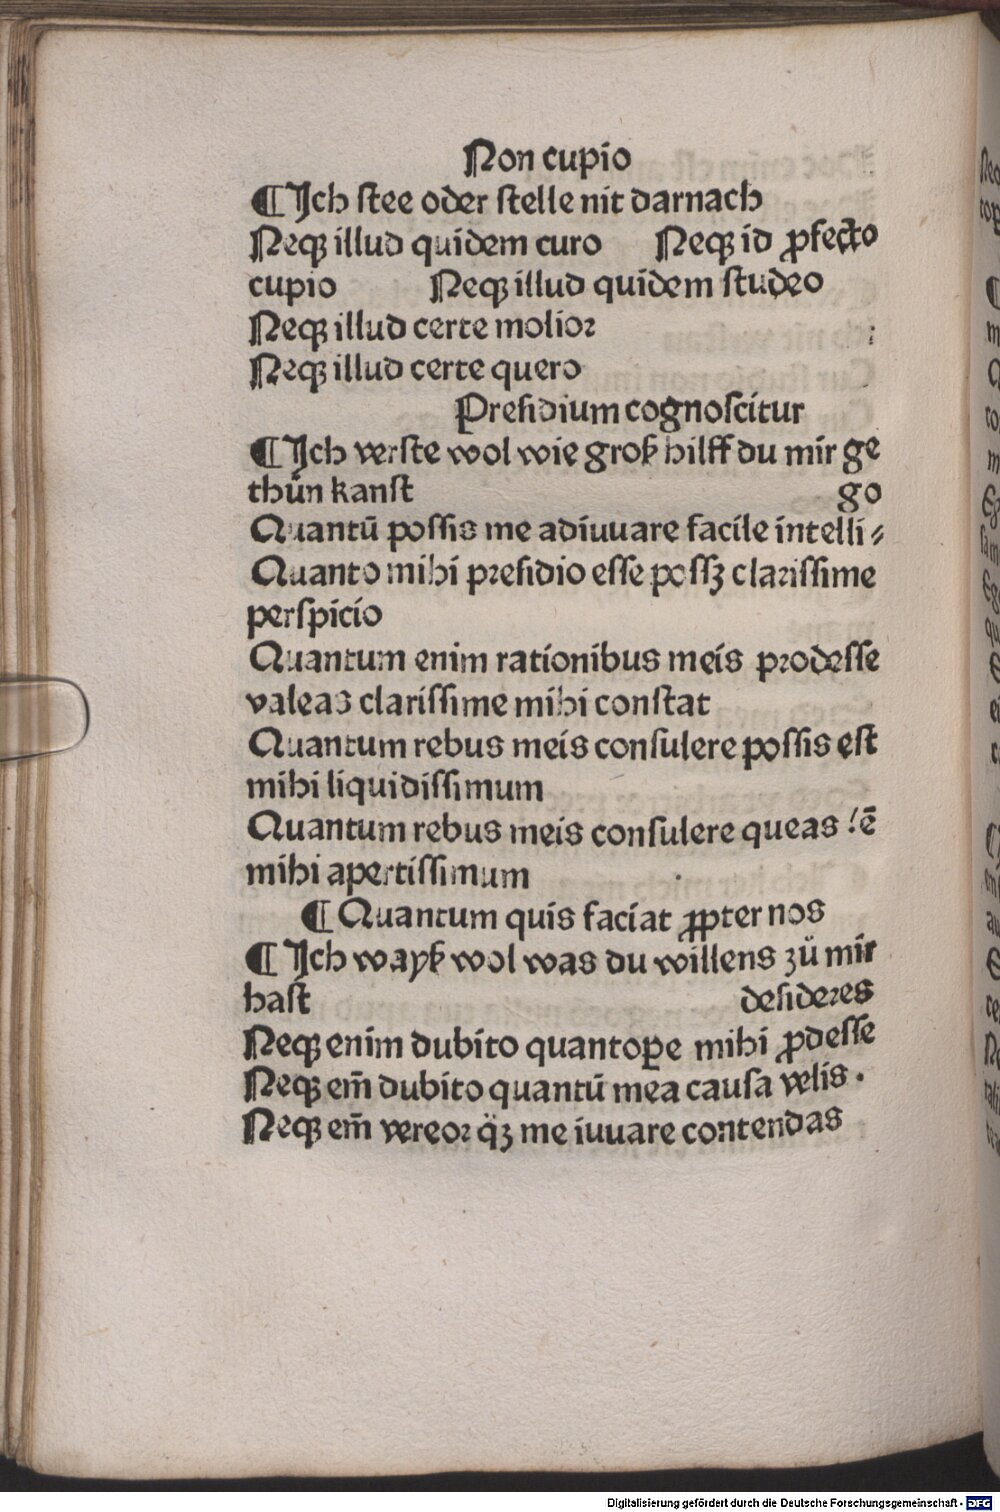 Non cupio
¶ Ich stee oder stelle nit darnach
Neqꝫ illud quidem curo Neqꝫ id ꝓfecto
cupio Neqꝫ illud quidem studeo
Neqꝫ illud certe molior
Neqꝫ illud certe quero
Presidium cognoscitur
¶ Ich verste wol wie groß hilff du mir ge
thün kanst go
Quantū possis me adiuuare facile intelli⸗
Quanto mihi presidio esse possꝫ clarissime
perspicio
Quantum enim rationibus meis prodesse
valeas clarissime mihi constat
Quantum rebus meis consulere possis est
mihi liquidissimum
Quantum rebus meis consulere queas ē
mihi apertissimum
¶ Quantum quis faciat ꝓpter nos
¶ Ich wayß wol was du willens zü mir
hast desideres
Neqꝫ enim dubito quantoꝑe mihi ꝓdesse
Neqꝫ em̄ dubito quantū mea causa velis .
Neqꝫ em̄ vereor me iuuare contendas
Digitalisierung gefördert durch die Deutsche Forschungsgemeinschaft - DFG